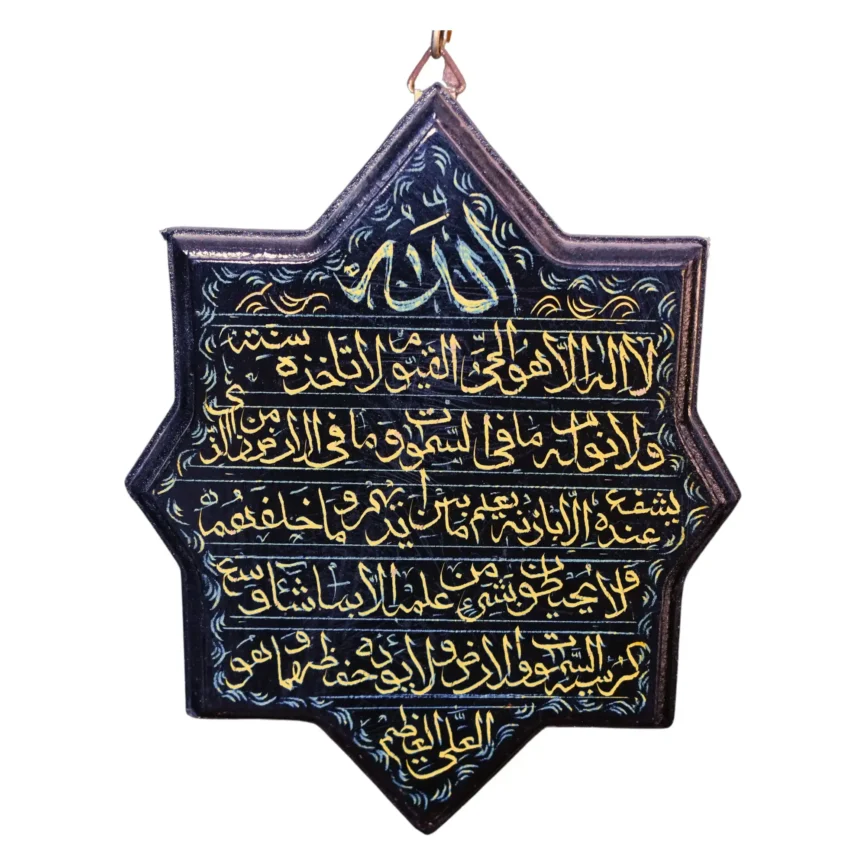 الله
لا اله الا هو الحی القیوم لا تاخذه سنته
ولا نوم له ما فی السموت و ما فی الارض من ذالذی
یشفع عنده الا باذنه یعلم ما بین ایدیهم و ما خلفهم
ولا یحیطون بشیء من علمه الا بما شآء وسع
کرسیه السموت والارض ولا یوده حفظهما و هو
العلی العظیم